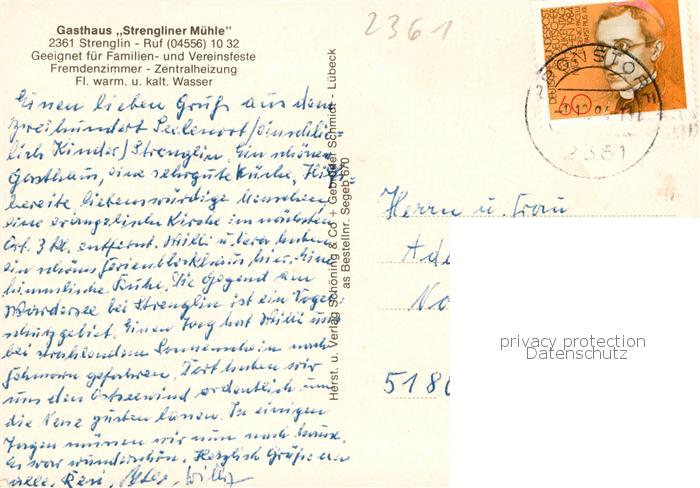 Gasthaus „Strengliner Mühle"
2361 Strenglin - Ruf (04556) 10 32
Geeignet für Familien- und Vereinsfeste
Fremdenzimmer - Zentralheizung
Fl. warm. u. kalt. Wasser
2361
Einen lieben Gruß aus dem
zweihundert Seelenort (einschließ-
lich Kinder) Strenglin. Ein schönes
Gasthaus, eine sehr gute Küche, Hilfs-
bereite liebenswürdige Menschen,
eine evangelische Kirche im nächsten
Ort. 3 km entfernt. Willi u. Vera haben
ein schönes Ferienblockhaus hier. Eine
himmlische Ruhe. Die Gegend am
Wardersee bei Strenglin ist ein Vogel-
schutzgebiet. Einen Tag hat Willi uns
bei strahlendem Sonnenschein nach
Fehmarn gefahren. Dort haben wir
uns den Ostseewind ordentlich um
die Nase pusten lassen. In einigen
Tagen müssen wir nun nach Hause.
Es war wunderschön. Herzlich Grüße an
alle. Willy
Herst. u. Verlag Schöning & Co + Gebrüder Schmidt - Lübeck
as Bestellnr. Segeb 670
60
2361
Herrn u. Frau
Ade
No
5180
privacy protection
Datenschutz